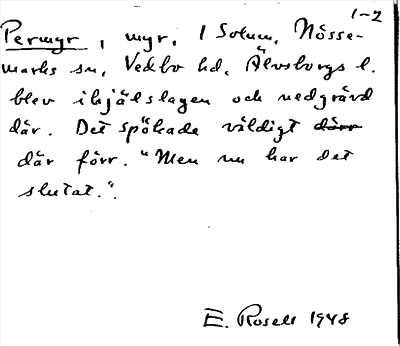 1-2
Permyr, myr, 1 Sotum, Nösse-
marks sn, Vedbo hd, Älvsborgs l.
blev ihjälslagen och nedgrävd
där. Det spökade väldigt därr
där förr. "Men nu har det
slutat.".
E. Rosell 1948